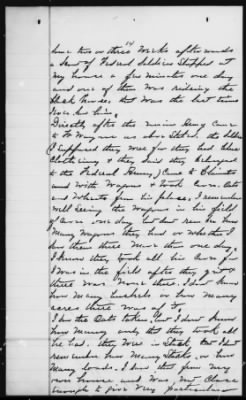 14
him two or three weeks afterwards
a few of Federal Soldiers stopped at
my house a few minutes one day
and one of them was riding the
Black horse. that was the last time
I ever saw him.
Directly after the main Army came
to Ft Wayne as above stated. the soldiers
(I supposed they were for they had blue
clothing & they said they belonged
to the Federal Army) came to Clients
and with wagons & took corn. oats
and wheat from his place. I remember
well seeing the wagons in his field
of corn one day but dont rem ber how
many wagons they had or whether I
saw them there more than one day.
I know they took all his corn for
I was in the field after they got &
there was none there. I dont know
how many bushels or how many
acres there was of it.
I saw the Oats taken but I dont know
how many only that they took all
he had. they were in Stack but I dont
remember how many Stacks, or how
many loads. I saw this from my
own house and was not close
enough to give very particular